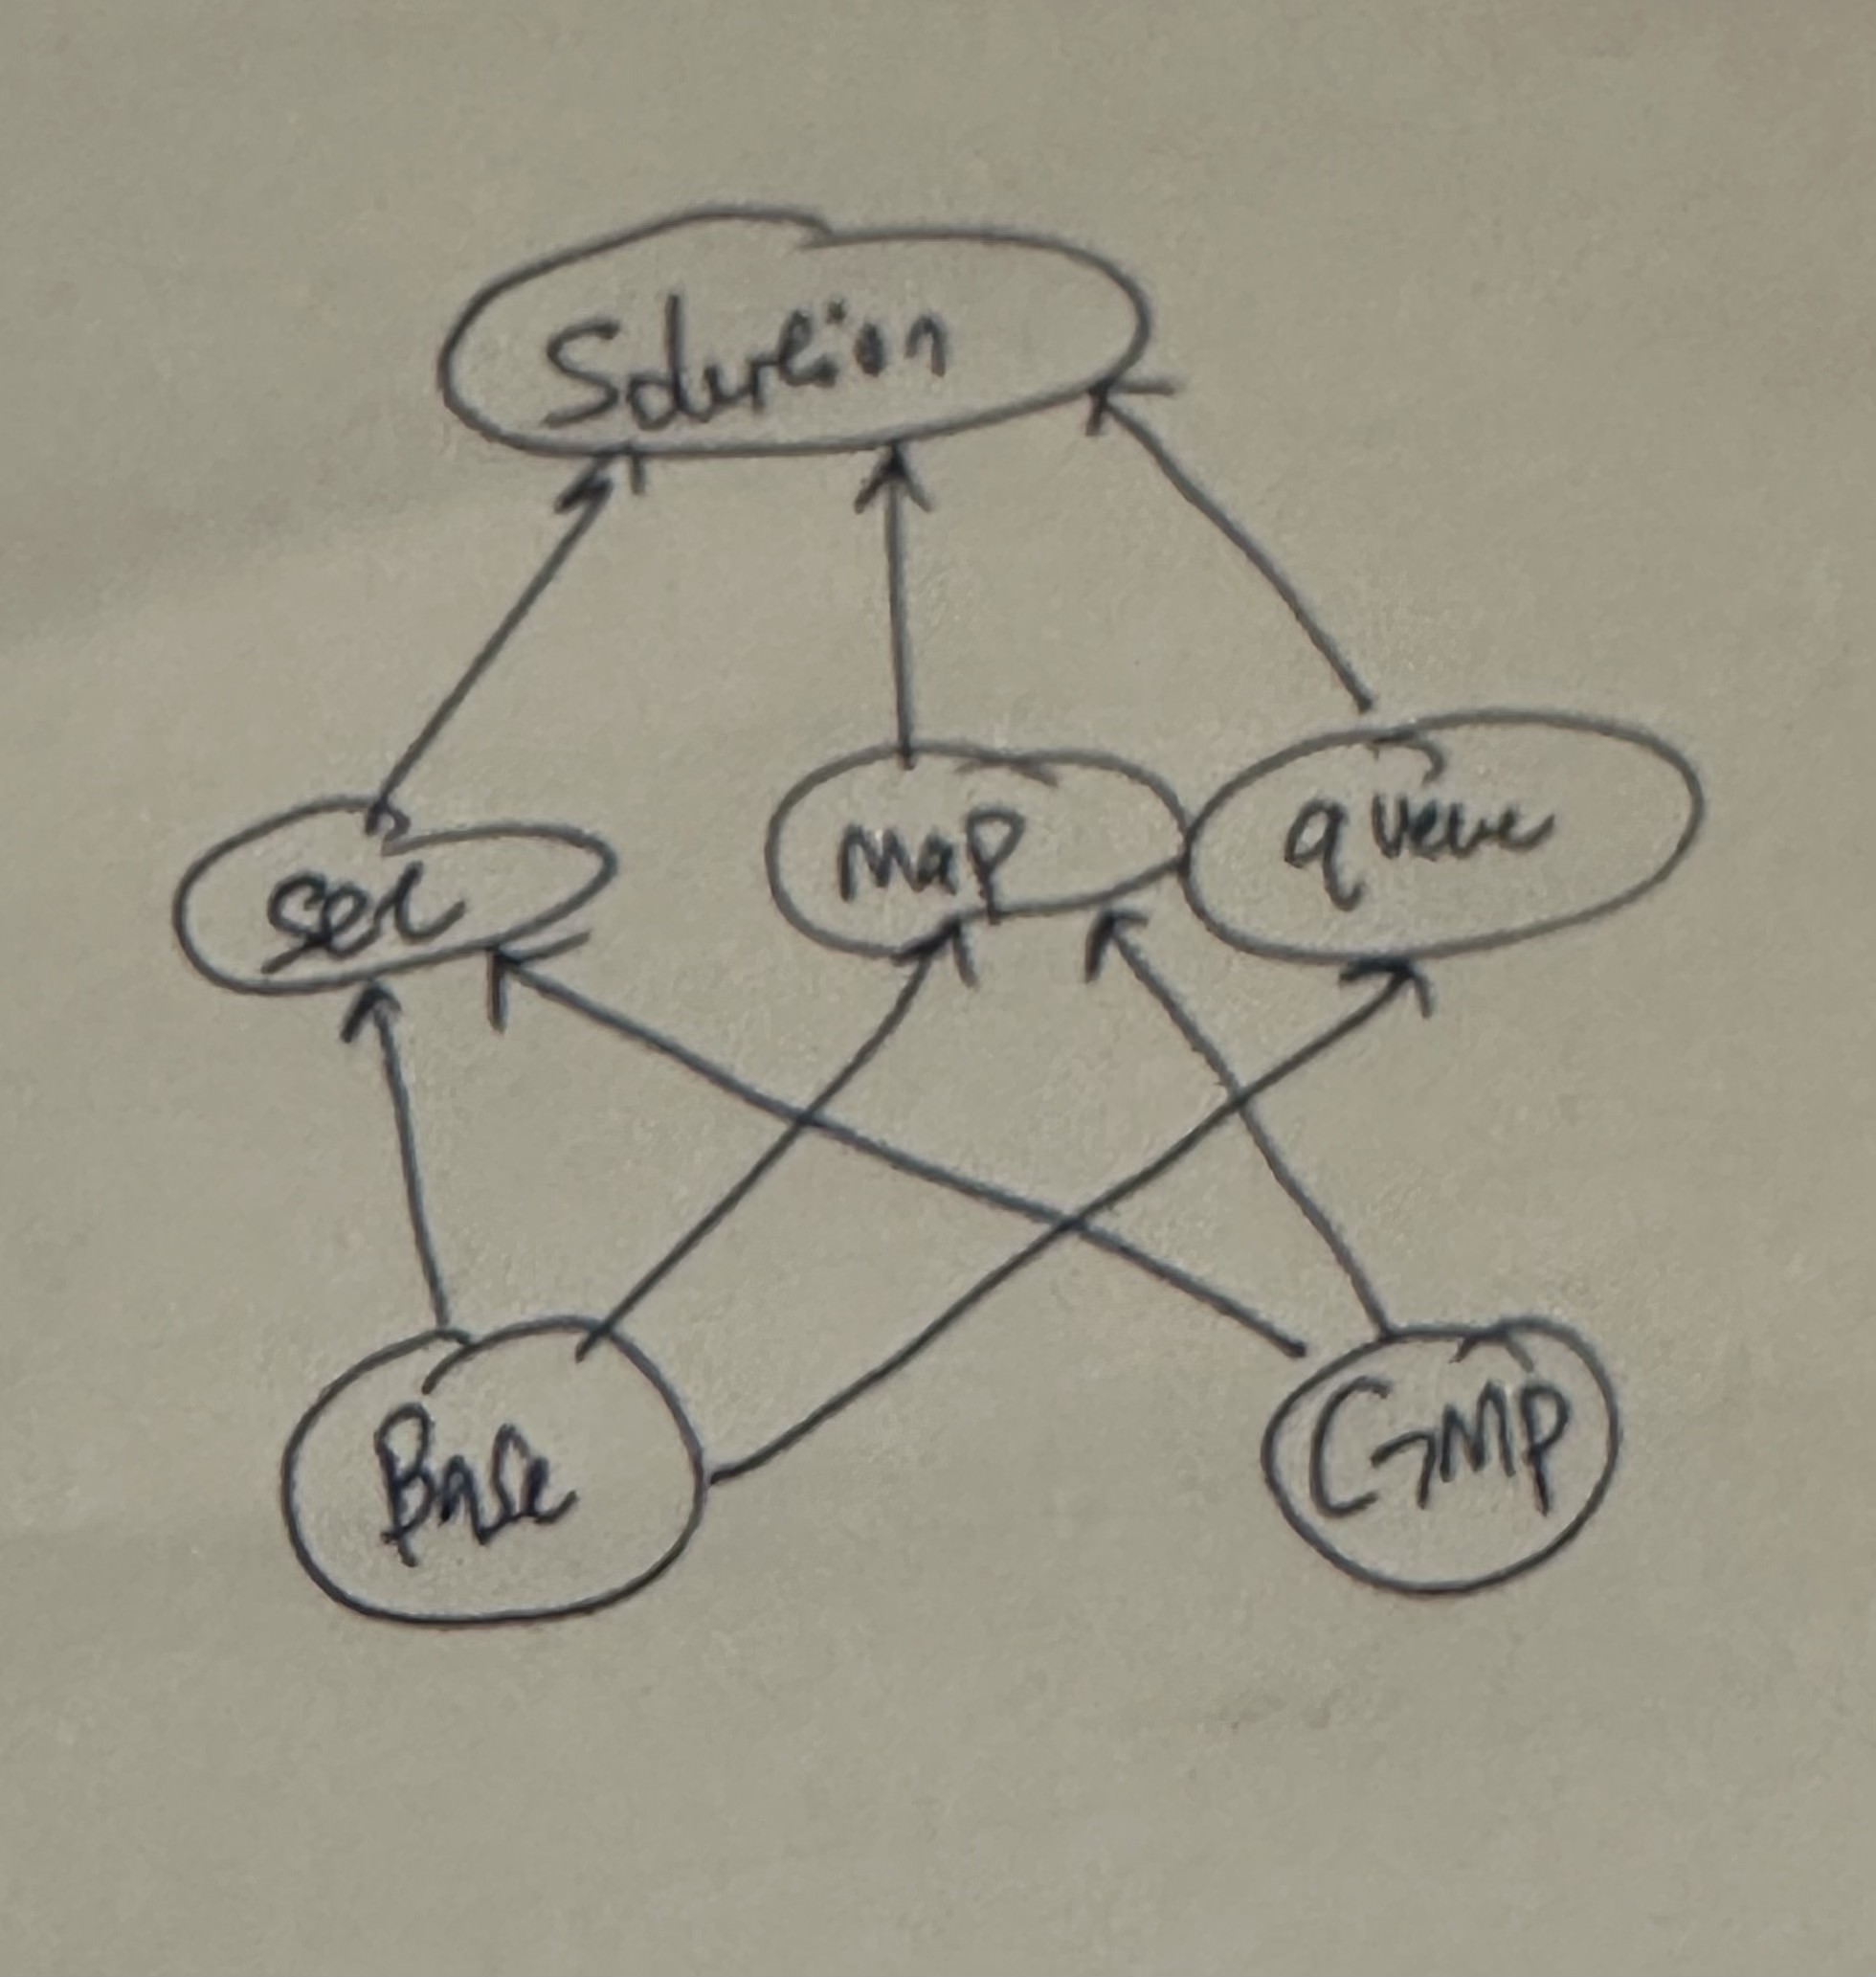 Solution
set
map
queue
Base
GMP